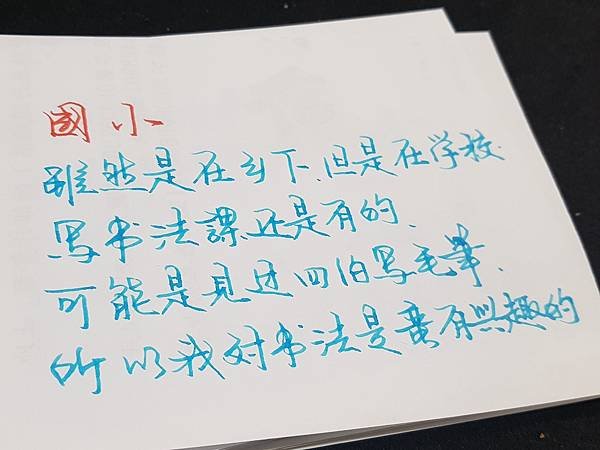 國小
虽然是在乡下.但是在学校.
写书法課还是有的、
可能是見过四伯写毛筆、
所以我对书法是蛮有兴趣的